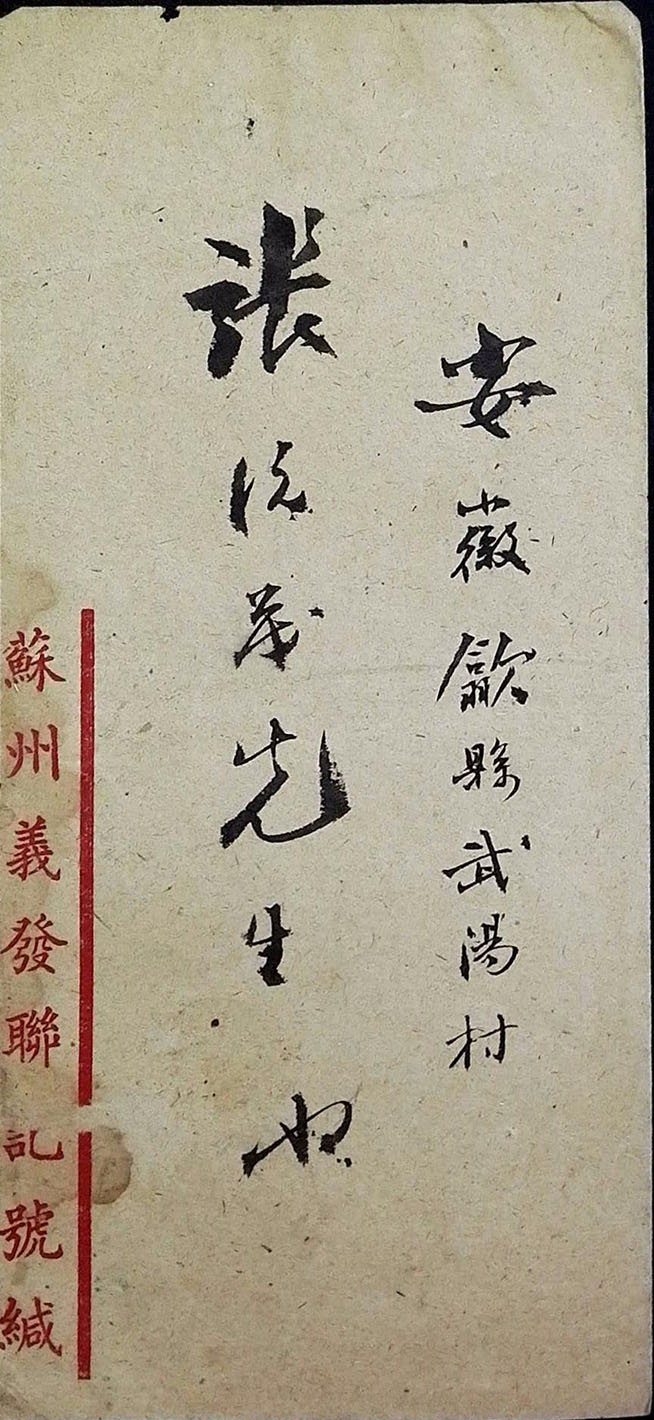 安徽歙縣武湯村
張茂先生 收
蘇州義發聯記號緘